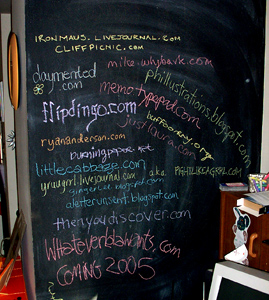 IRONMAUS.LIVEJOURNAL.COM
CLIFFPICNIC.COM
mike.whybark.com
daymented.com
phillustrations.blogspot.com
memo.typepad.com
flipdingo.com
buffoonery.org
justlaura.com
ryananderson.com
burningpaper.net
littlecabbage.com
yruugrrl.livejournal.com a.k.a. FIGHTLIKEAGRRL.COM
gingerlee.blogspot.com
alerterunsent.blogspot.com
thenyoudiscover.com
Whateverldawants.com
COMING 2005